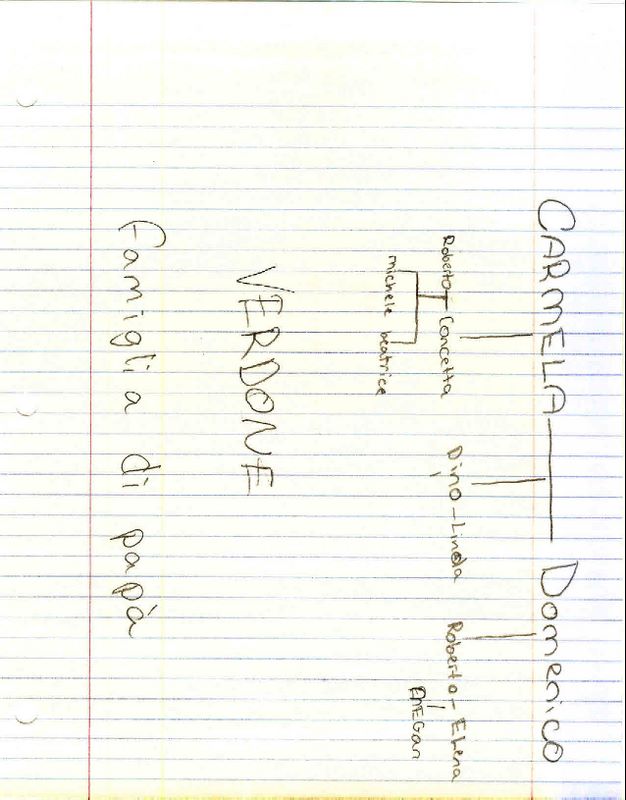 CARMELA Domenico
Roberto - Concetta Dino - Linda Roberto - Elena
michele beatrice MEGan
VERDONE
Famiglia di papà